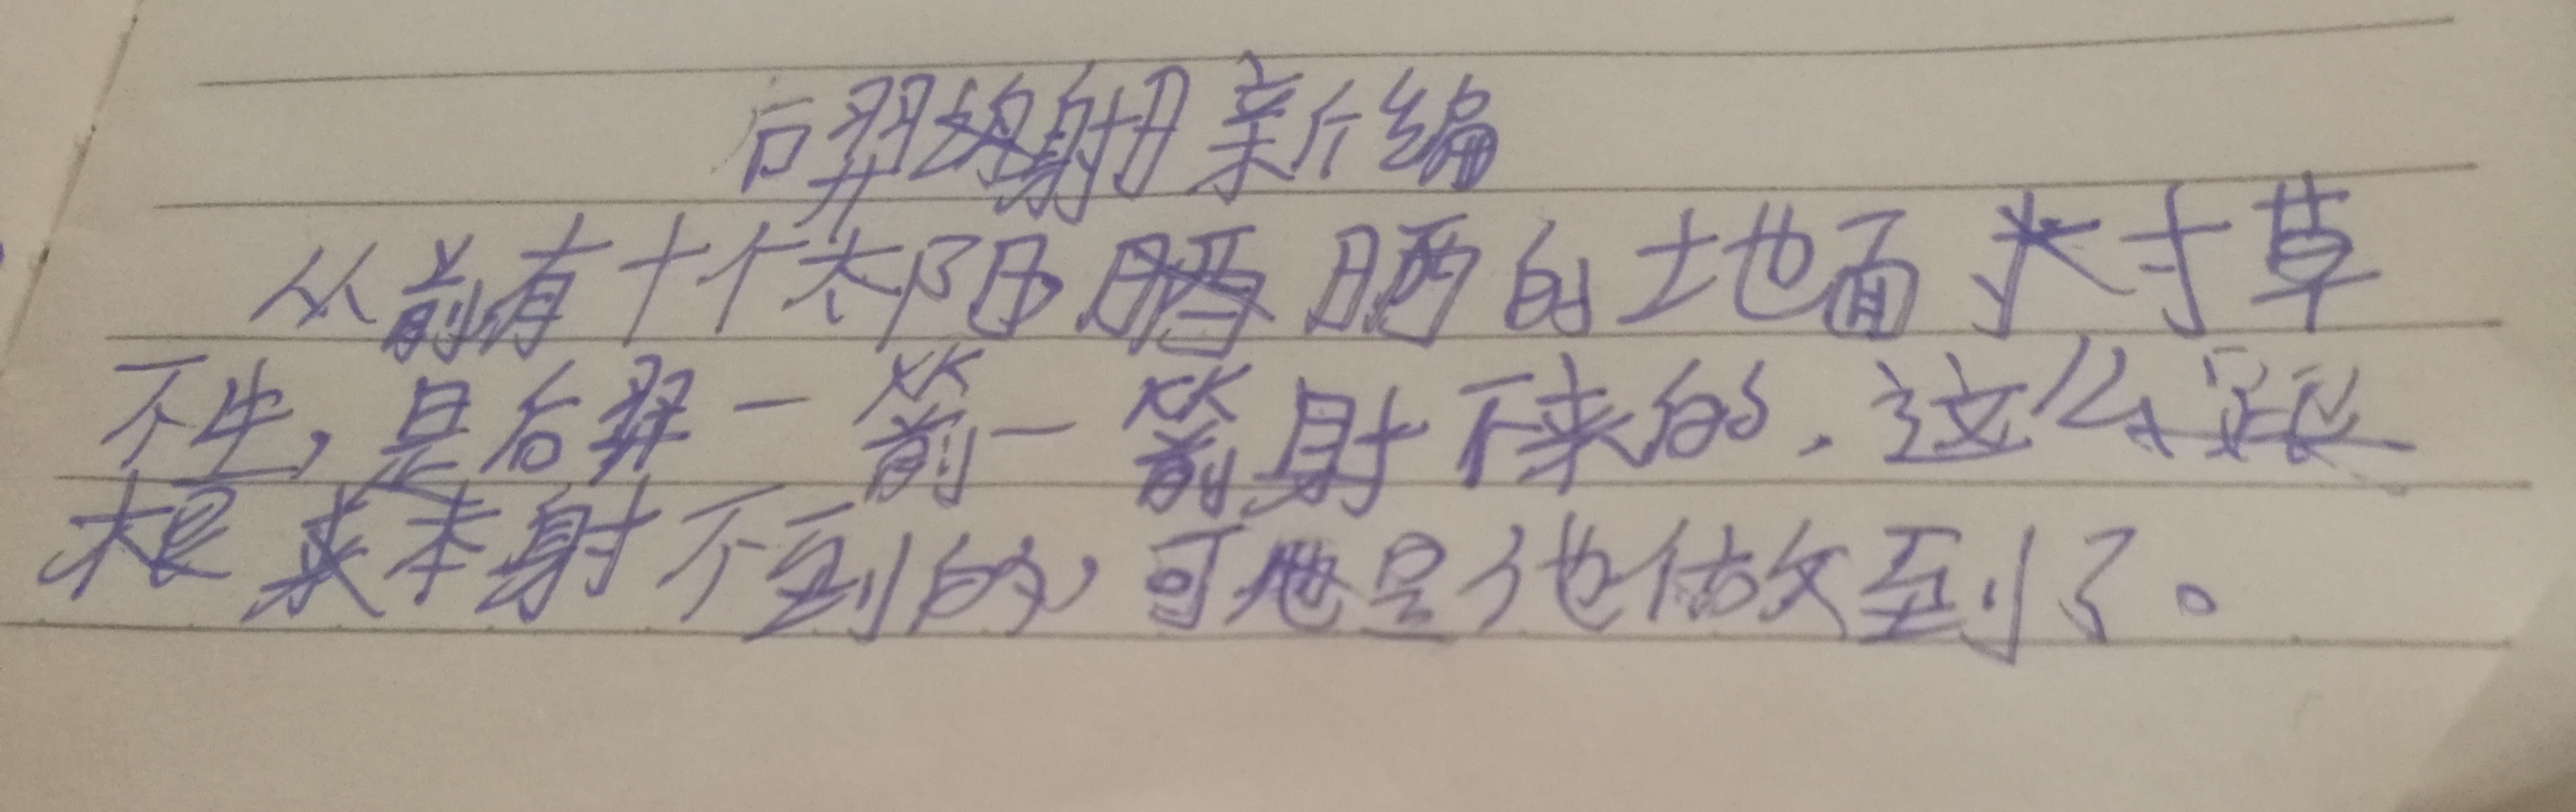 后羿射日新编
从前有十个太阳晒的土地面寸草
不生,是后羿一箭一箭射下来的,这么远
根本射不到的,可是他做到了。